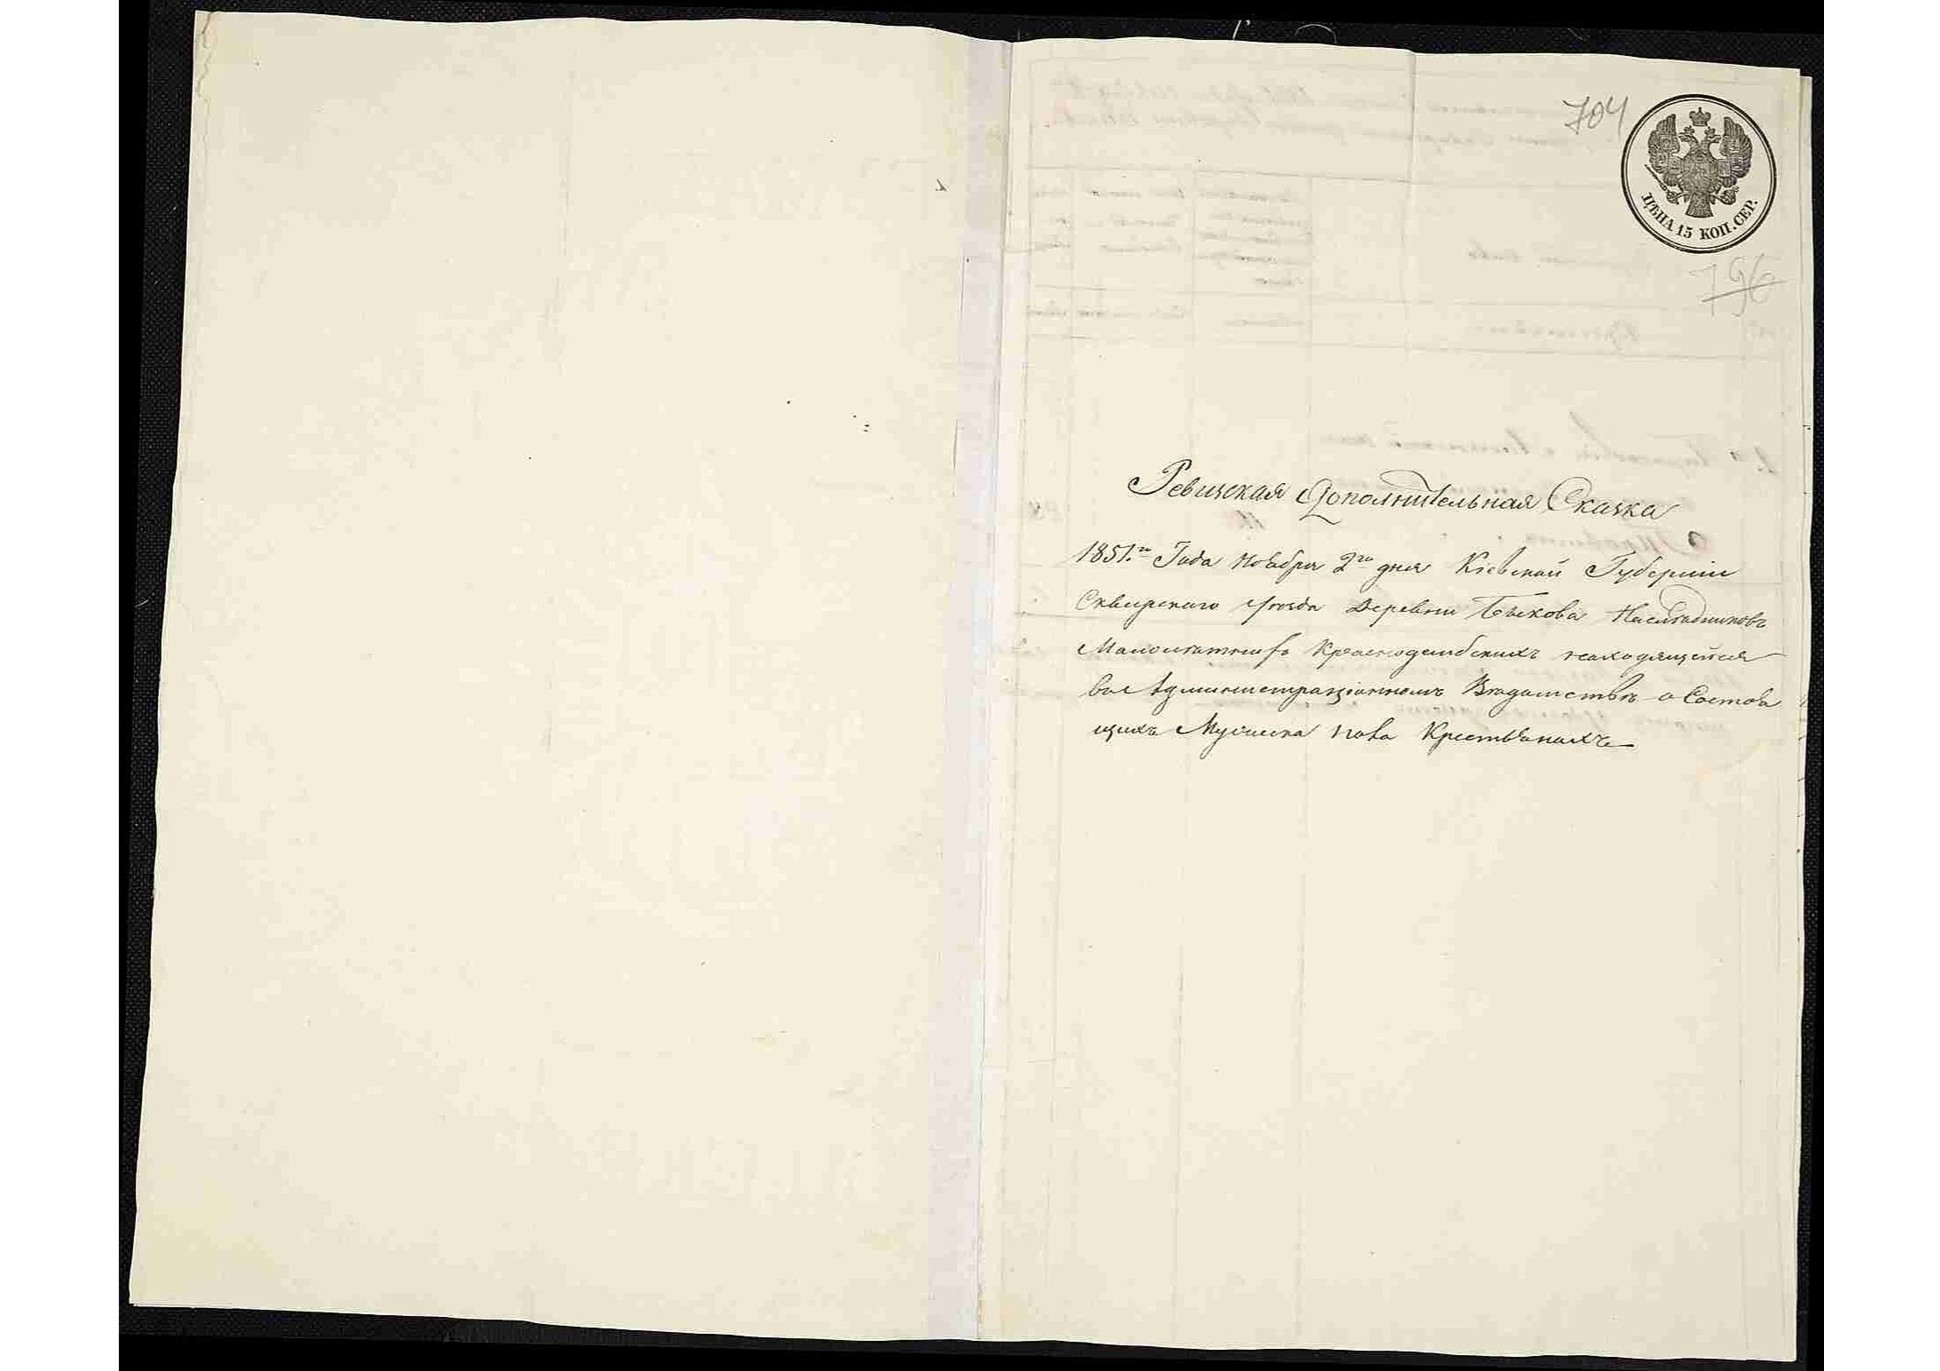 704
ЦѢНА 15 КОП. СЕР.
796
Ревизская Дополнительная Сказка
1851.го Года Ноября 2го дня Кіевской Губерніи
Сквирского уѣзда Деревни Быкова Наслѣдниковъ
находящейся
во Администраціонномъ Вѣдомствѣ о Состоя
щихъ Мужеска пола Крестьянахъ